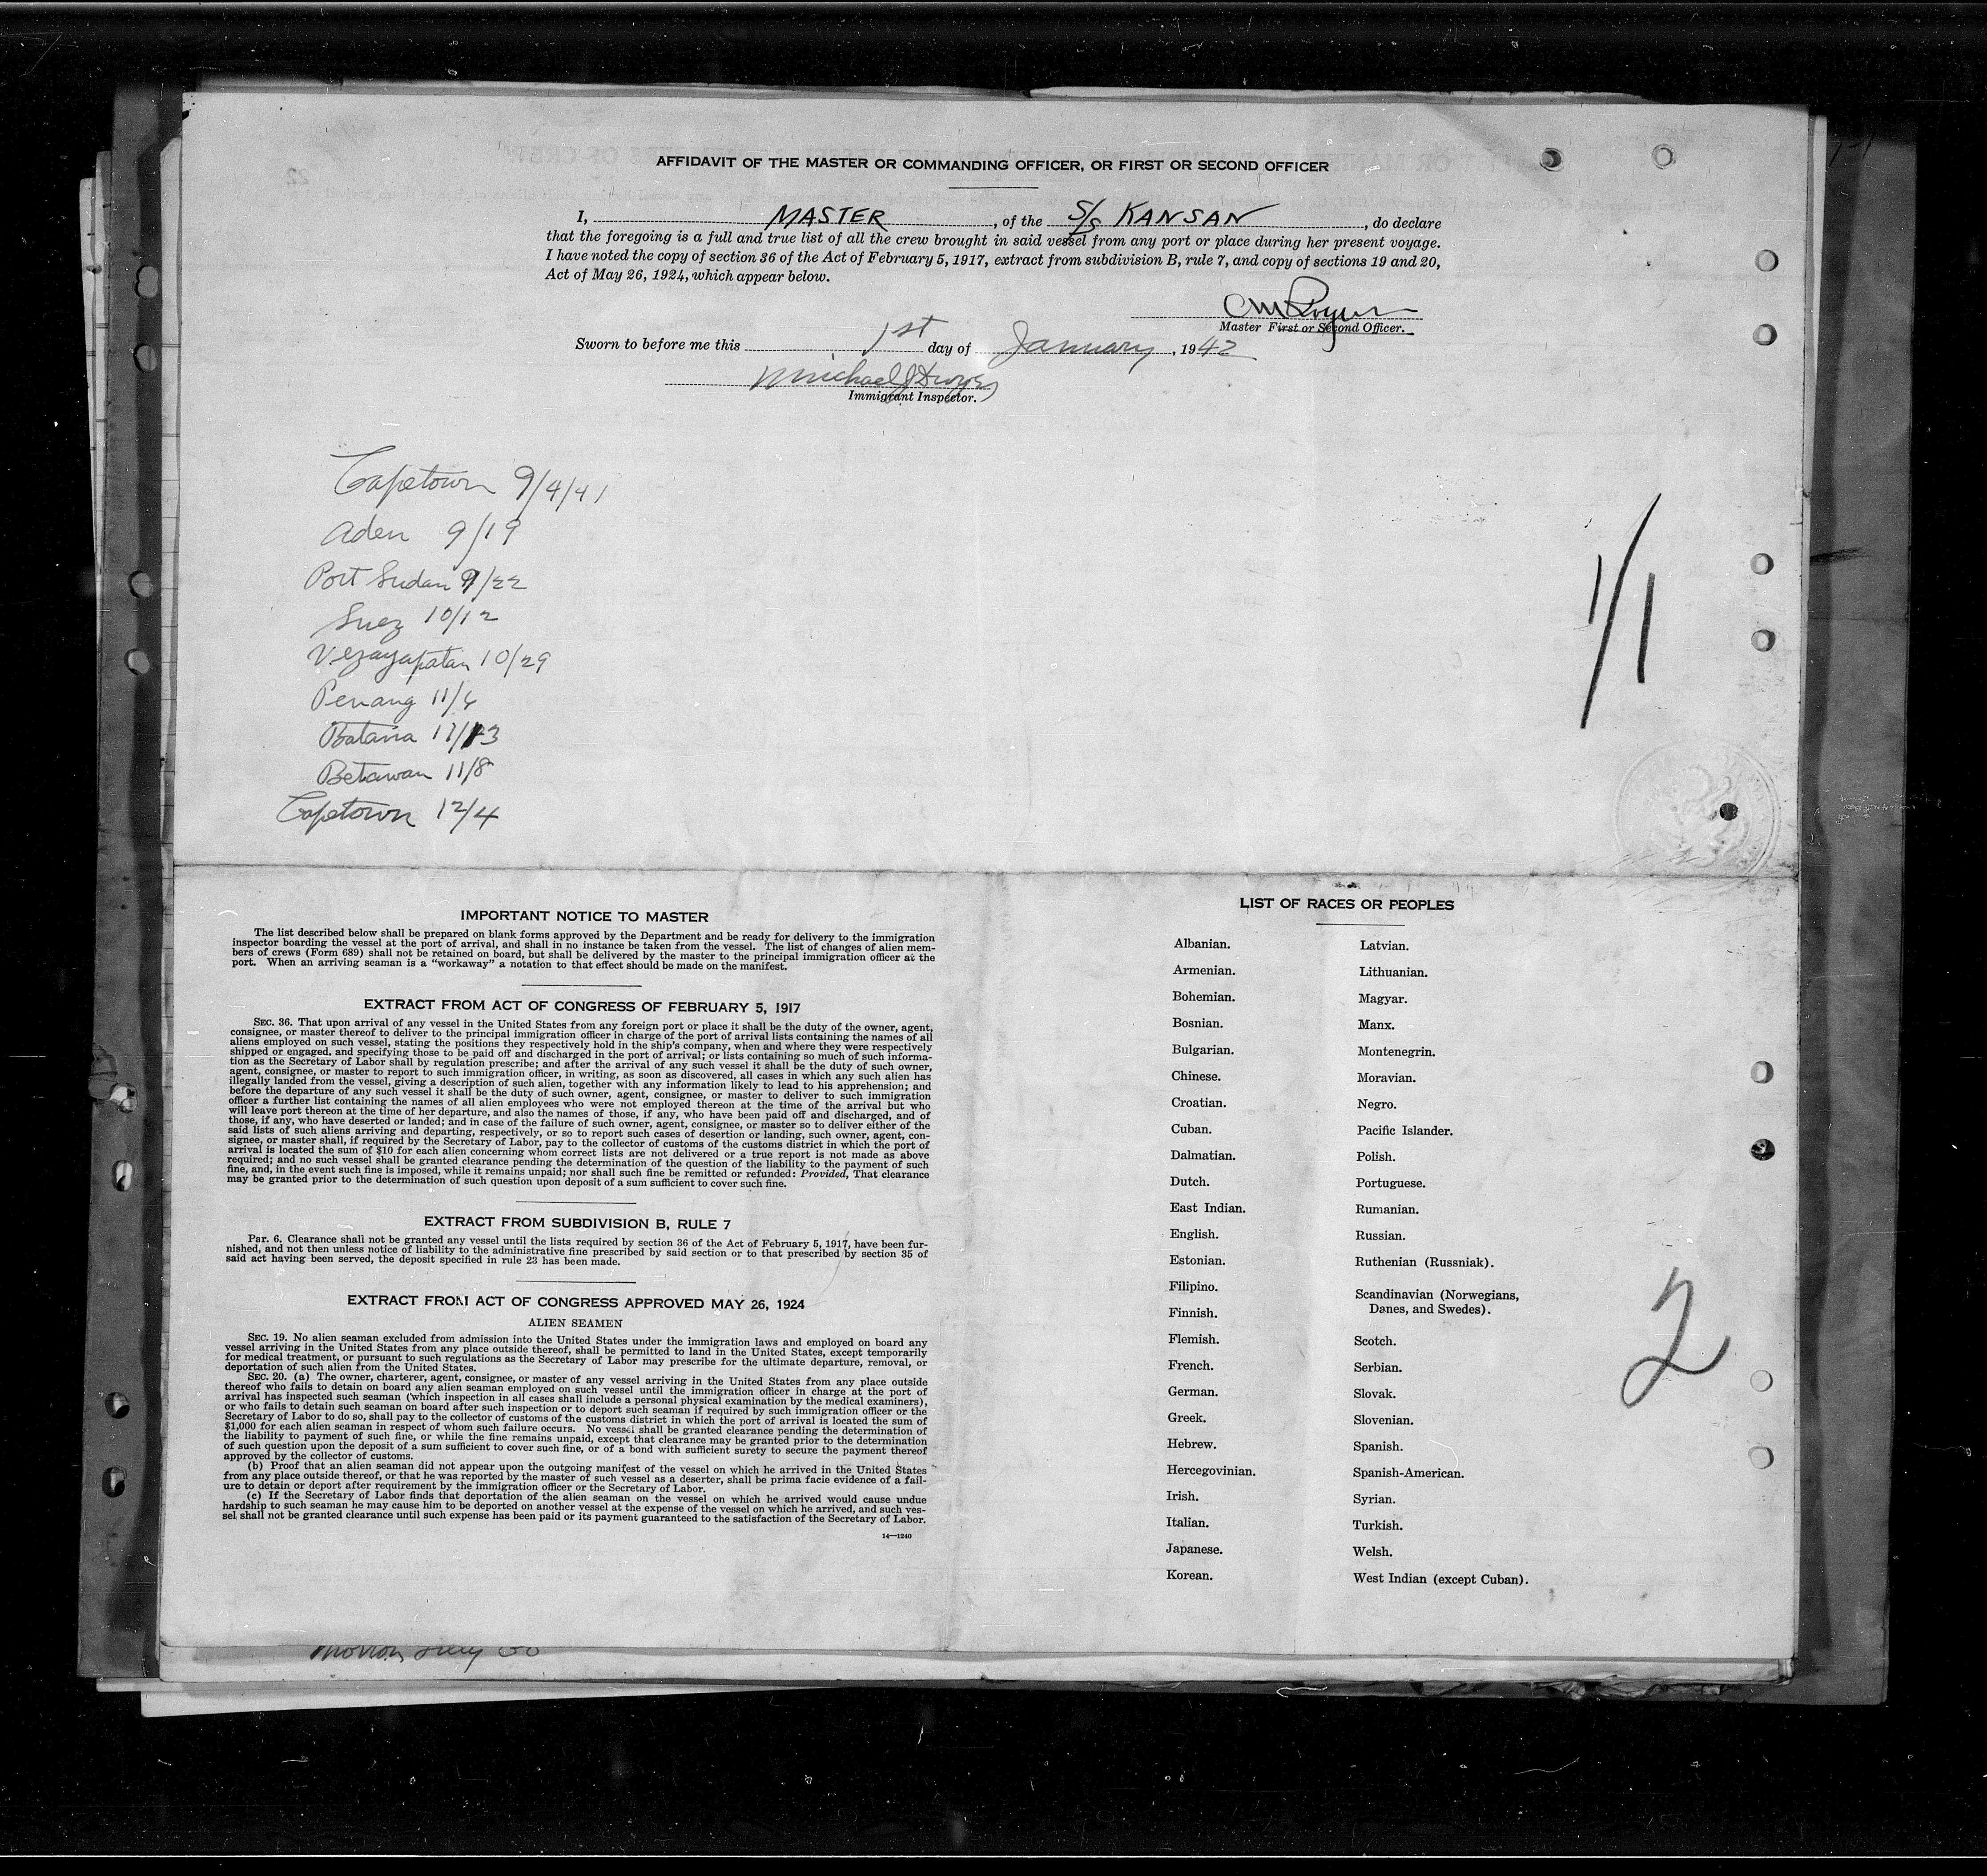 AFFIDAVIT OF THE MASTER OR COMMANDING OFFICER, OR FIRST OR SECOND OFFICER
I, MASTER, of the S/S KANSAN, do declare
that the foregoing is a full and true list of all the crew brought in said vessel from any port or place during her present voyage.
I have noted the copy of section 36 of the Act of February 5, 1917, extract from subdivision B, rule 7, and copy of sections 19 and 20,
Act of May 26, 1924, which appear below.
Master First or Second Officer.
Sworn to before me this 1st day of January, 1942
Michael J Dwyer
Immigrant Inspector.
Capetown 9/4/41
Aden 9/19
Port Sudan 9/22
Suez 10/12
Vezayapatan 10/29
Penang 11/6
Batavia 11/13
Betawan 11/8
Capetown 12/4
1/1
IMPORTANT NOTICE TO MASTER
The list described below shall be prepared on blank forms approved by the Department and be ready for delivery to the immigration
inspector boarding the vessel at the port of arrival, and shall in no instance be taken from the vessel. The list of changes of alien mem-
bers of crews (Form 689) shall not be retained on board, but shall be delivered by the master to the principal immigration officer at the
port. When an arriving seaman is a "workaway" a notation to that effect should be made on the manifest.
EXTRACT FROM ACT OF CONGRESS OF FEBRUARY 5, 1917
SEC. 36. That upon arrival of any vessel in the United States from any foreign port or place it shall be the duty of the owner, agent,
consignee, or master thereof to deliver to the principal immigration officer in charge of the port of arrival lists containing the names of all
aliens employed on such vessel, stating the positions they respectively hold in the ship's company, when and where they were respectively
shipped or engaged, and specifying those to be paid off and discharged in the port of arrival; or lists containing so much of such informa-
tion as the Secretary of Labor shall by regulation prescribe; and after the arrival of any such vessel it shall be the duty of such owner,
agent, consignee, or master to report to such immigration officer, in writing, as soon as discovered, all cases in which any such alien has
illegally landed from the vessel, giving a description of such alien, together with any information likely to lead to his apprehension; and
before the departure of any such vessel it shall be the duty of such owner, agent, consignee, or master to deliver to such immigration
officer a further list containing the names of all alien employees who were not employed thereon at the time of the arrival but who
will leave port thereon at the time of her departure, and also the names of those, if any, who have been paid off and discharged, and of
those, if any, who have deserted or landed; and in case of the failure of such owner, agent, consignee, or master so to deliver either of the
said lists of such aliens arriving and departing, respectively, or so to report such cases of desertion or landing, such owner, agent, con-
signee, or master shall, if required by the Secretary of Labor, pay to the collector of customs of the customs district in which the port of
arrival is located the sum of $10 for each alien concerning whom correct lists are not delivered or a true report is not made as above
required; and no such vessel shall be granted clearance pending the determination of the question of the liability to the payment of such
fine, and, in the event such fine is imposed, while it remains unpaid; nor shall such fine be remitted or refunded: Provided, That clearance
may be granted prior to the determination of such question upon deposit of a sum sufficient to cover such fine.
EXTRACT FROM SUBDIVISION B, RULE 7
PAR. 6. Clearance shall not be granted any vessel until the lists required by section 36 of the Act of February 5, 1917, have been fur-
nished, and not then unless notice of liability to the administrative fine prescribed by said section or to that prescribed by section 35 of
said act having been served, the deposit specified in rule 23 has been made.
EXTRACT FROM ACT OF CONGRESS APPROVED MAY 26, 1924
ALIEN SEAMEN
SEC. 19. No alien seaman excluded from admission into the United States under the immigration laws and employed on board any
vessel arriving in the United States from any place outside thereof, shall be permitted to land in the United States, except temporarily
for medical treatment, or pursuant to such regulations as the Secretary of Labor may prescribe for the ultimate departure, removal, or
deportation of such alien from the United States.
SEC. 20. (a) The owner, charterer, agent, consignee, or master of any vessel arriving in the United States from any place outside
thereof who fails to detain on board any alien seaman employed on such vessel until the immigration officer in charge at the port of
arrival has inspected such seaman (which inspection in all cases shall include a personal physical examination by the medical examiners),
or who fails to detain such seaman on board after such inspection or to deport such seaman if required by such immigration officer or the
Secretary of Labor to do so, shall pay to the collector of customs of the customs district in which the port of arrival is located the sum of
$1,000 for each alien seaman in respect of whom such failure occurs. No vessel shall be granted clearance pending the determination of
the liability to payment of such fine, or while the fine remains unpaid, except that clearance may be granted prior to the determination
of such question upon the deposit of a sum sufficient to cover such fine, or of a bond with sufficient surety to secure the payment thereof
approved by the collector of customs.
(b) Proof that an alien seaman did not appear upon the outgoing manifest of the vessel on which he arrived in the United States
from any place outside thereof, or that he was reported by the master of such vessel as a deserter, shall be prima facie evidence of a fail-
ure to detain or deport after requirement by the immigration officer or the Secretary of Labor.
(c) If the Secretary of Labor finds that deportation of the alien seaman on the vessel on which he arrived would cause undue
hardship to such seaman he may cause him to be deported on another vessel at the expense of the vessel on which he arrived, and such ves-
sel shall not be granted clearance until such expense has been paid or its payment guaranteed to the satisfaction of the Secretary of Labor.
14—1240
LIST OF RACES OR PEOPLES
Albanian.
Armenian.
Bohemian.
Bosnian.
Bulgarian.
Chinese.
Croatian.
Cuban.
Dalmatian.
Dutch.
East Indian.
English.
Estonian.
Filipino.
Finnish.
Flemish.
French.
German.
Greek.
Hebrew.
Hercegovinian.
Irish.
Italian.
Japanese.
Korean.
Latvian.
Lithuanian.
Magyar.
Manx.
Montenegrin.
Moravian.
Negro.
Pacific Islander.
Polish.
Portuguese.
Rumanian.
Russian.
Ruthenian (Russniak).
Scandinavian (Norwegians,
Danes, and Swedes).
Scotch.
Serbian.
Slovak.
Slovenian.
Spanish.
Spanish-American.
Syrian.
Turkish.
Welsh.
West Indian (except Cuban).
2